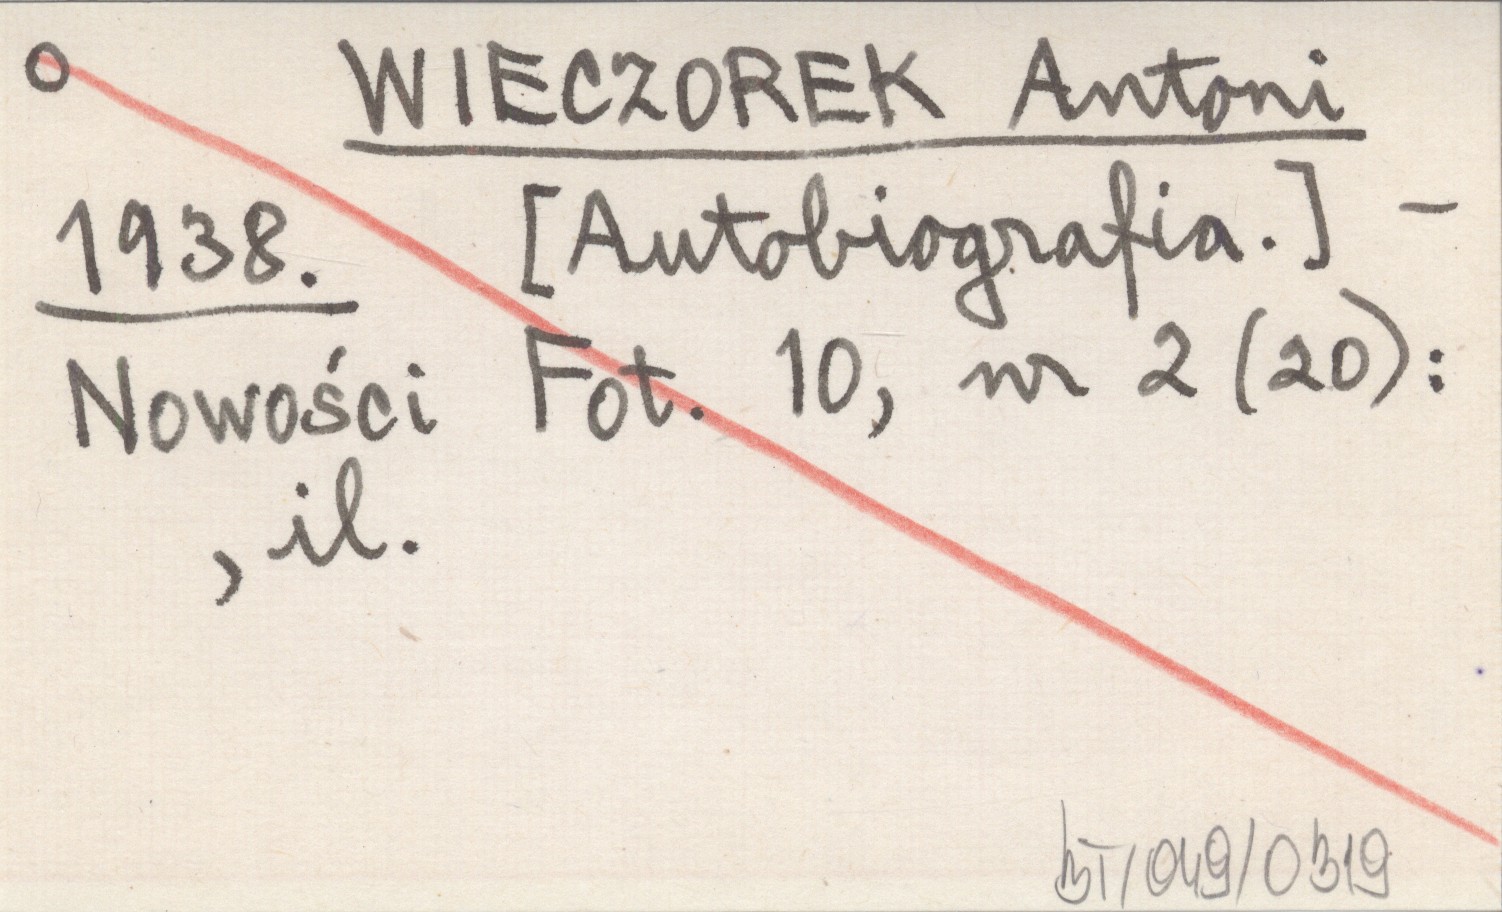 O WIECZOREK Antoni
1938. [Autobiografia.] –
Nowości Fot. 10, nr 2 (20):
, il.
BT/049/0319